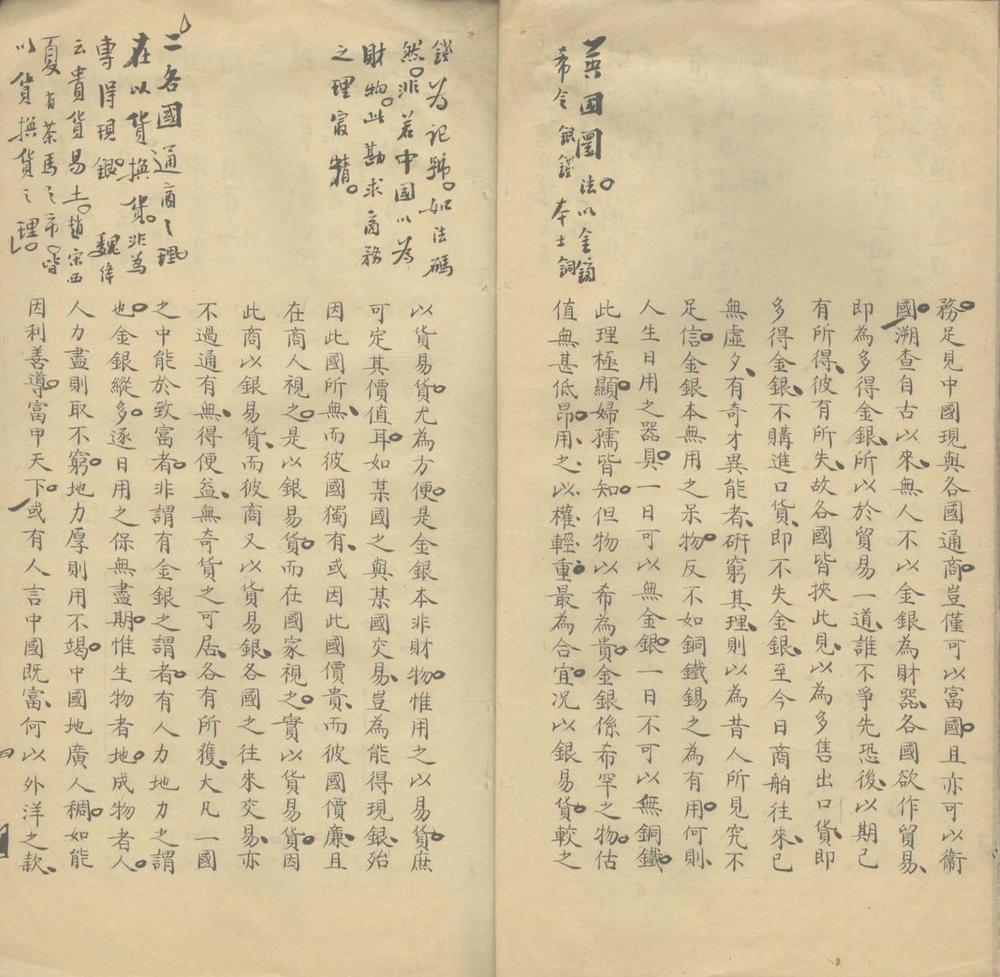 一英國圜法以金鎊
希令銀錢本士銅
錢為記號如法碼
然非若中國以為
財物此勘求商務
之理最精
二各國通商之理
在以貨換貨非為
專得現銀魏偉
云貴貨易土趙宋西
夏有茶馬之市皆
以貨換貨之理
務足見中國現與各國通商豈僅可以富國且亦可以衛
國溯查自古以來無人不以金銀為財器各國欲作貿易
即為多得金銀所以於貿易一道誰不爭先恐後以期己
有所得彼有所失故各國皆挾此見以為多售出口貨即
多得金銀不購進口貨即不失金銀至今日商舶往來已
無虛夕有奇才異能者研窮其理則以為昔人所見究不
足信金銀本無用之呆物反不如銅鐵錫之為有用何則
人生日用之器具一日可以無金銀一日不可以無銅鐵
此理極顯婦孺皆知但物以希為貴金銀係希罕之物估
值無甚低昂用之以權輕重最為合宜况以銀易貨較之
以貨易貨尤為方便是金銀本非財物惟用之以易貨庶
可定其價值耳如某國之與某國交易豈為能得現銀殆
因此國所無而彼國獨有或因此國價貴而彼國價廉且
在商人視之是以銀易貨而在國家視之實以貨易貨因
此商以銀易貨而彼商又以貨易銀各國之往來交易亦
不過通有無得便益無奇貨之可居各有所獲大凡一國
之中能於致富者非謂有金銀之謂者有人力地力之謂
也金銀縱多逐日用之保無盡期惟生物者地成物者人
人力盡則取不窮地力厚則用不竭中國地廣人稠如能
因利善導富甲天下或有人言中國既富何以外洋之款